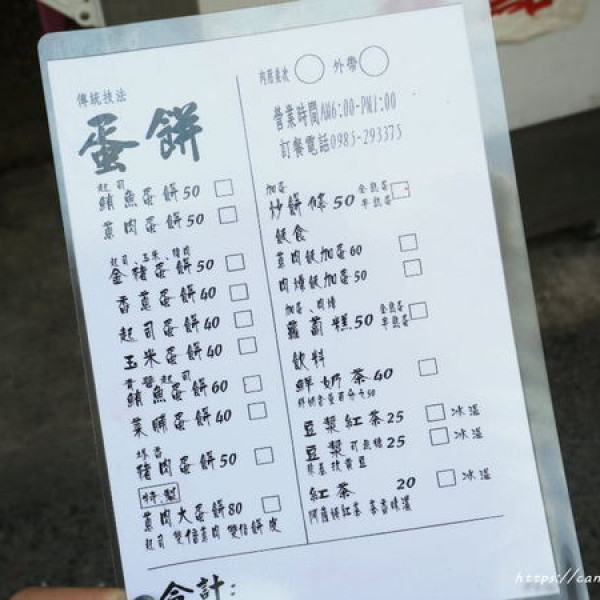 傳統技法
蛋餅
起司
鮪魚蛋餅50
蔥肉蛋餅50
起司、玉米、豬肉
金豬蛋餅50
香蔥蛋餅40
起司蛋餅40
玉米蛋餅40
青醬起司
鮪魚蛋餅60
菜脯蛋餅40
塔香
豬肉蛋餅50
特製
蔥肉大蛋餅80
起司 雙倍蔥肉 雙倍餅皮
內用桌次 外帶
營業時間AM6:00-PM1:00
訂餐電話0985-293375
加蛋
炒餅條50 全熟蛋
半熟蛋
飯食
蔥肉飯加蛋60
肉燥飯加蛋50
加蛋、肉燥
蘿蔔糕50 全熟蛋
半熟蛋
飲料
鮮奶茶40
豆漿紅茶25 冰溫
豆漿 可無糖25 冰溫
非基改黃豆
紅茶 20 冰溫
阿薩姆紅茶 茶香味濃
合計:
https://can